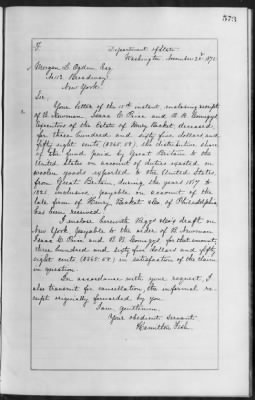 573
Department of State
Washington November 21st 1870
Morgan L. Ogden, Esq.
No. 112 Broadway
New York.
Sir,
Your letter of the 15th instant, inclosing receipt
of B. Newman, Isaac C. Price and B. B. Comegys
Executors of the Estate of Henry Baker deceased,
for three hundred and sixty five dollars and
fifty eight cents, ($365.58), the distributive share
of the fund paid by Great Britain to the
United States on account of duties exacted on
woolen goods exported to the United States,
from Great Britain, during the years 1819 to
1823 inclusive, payable on account of the
late firm of Henry Baker & Co of Philadelphia
has been received.
I inclose herewith Riggs & Co's draft on
New York payable to the order of B. Newman
Isaac C. Price and B. B. Comegys for that amount,
three hundred and sixty five dollars and fifty
eight cents ($365.58) in satisfaction of the claim
in question.
In accordance with your request, I
also transmit for cancellation, the informal re-
ceipt originally forwarded by you.
I am, gentlemen,
Your obedient servant
Hamilton Fish.